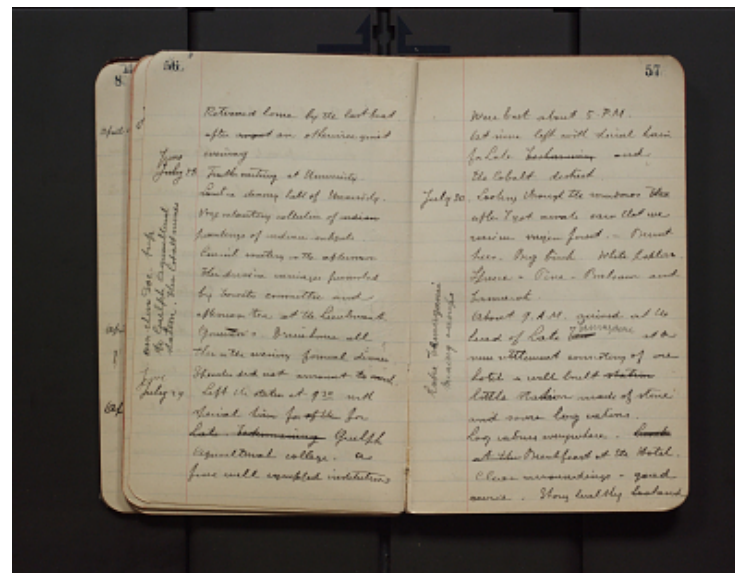 8
56
Returned home by the last boat
after an otherwise quiet
evening
July 28 Tenth meeting at University
Lunch in dining hall of University.
Very interesting collection of indian
paintings of indian subjects.
Council meeting in the afternoon
then drive in carriages furnished
by Toronto committee and
afternoon tea at the Lieutenant
Governor's. Drove home all
then in the evening formal dinner
Speeches did not amount to much.
July 29 Left the station at 9 30 with
special train for for
Late Guelph
Agricultural college. a
fine well equipped institution
to Guelph Agricultural
station. Then Cobalt mines
57
Were back about 5 P.M.
At nine left with special train
for Lake and
the Cobalt district
July 30. Looking through the windows
after I got awake saw that we
were in virgin forest. - Burnt
trees. Big birch White
Spruce - Pine - Balsam and
Tamarack.
About 9 A.M. arrived at the
head of Lake at a
new settlement consisting of one
hotel a well built station
little station made of stone
and some log cabins.
Log cabins everywhere.
At this Breakfast at the Hotel.
Clean surroundings - good
service.
Lake Temagami